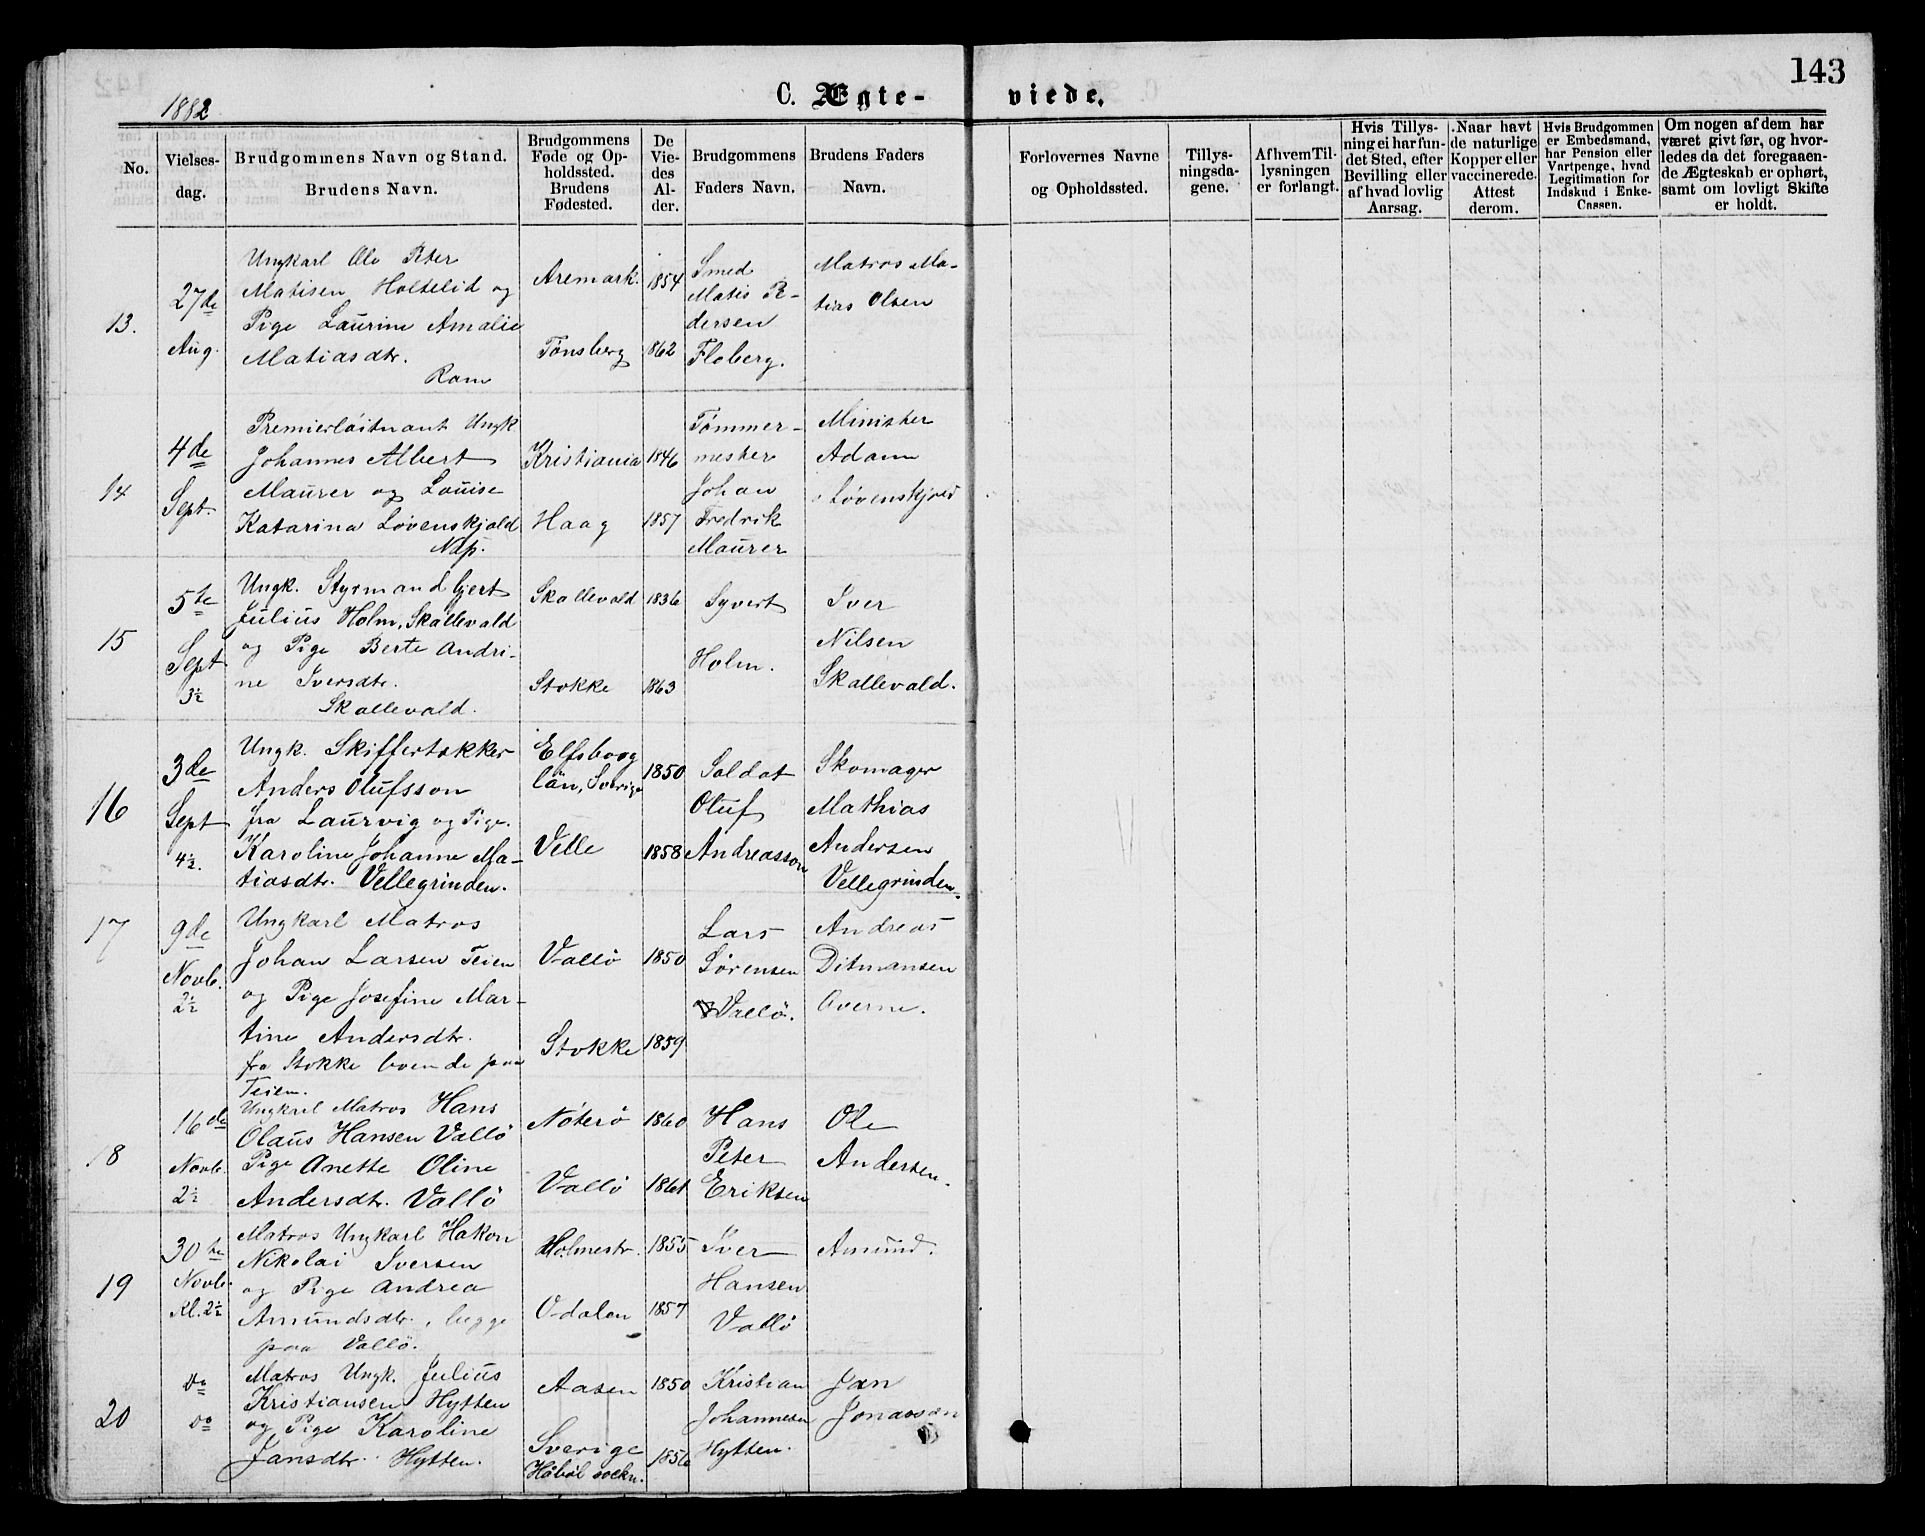 143
1882
C. Ægte-
viede.
No.
Vielses-
dag.
Brudgommens Navn og Stand.
Brudens Navn.
Brudgommens
Føde og Op-
holdssted.
Brudens
Fødested.
De
Vie-
des
Al-
der.
Brudgommens
Faders Navn.
Brudens Faders
Navn.
Forlovernes Navne
og Opholdssted.
Tillys-
ningsda-
gene.
Af hvem Til-
lysningen
er forlangt.
Hvis Tillys-
ning ei har fun-
det Sted, efter
Bevilling eller
af hvad lovlig
Aarsag.
Naar havt
de naturlige
Kopper eller
vaccinerede.
Attest
derom.
Hvis Brudgommen
er Embedsmand,
har Pension eller
Vartpenge, hvad
Legitimation for
Indskud i Enke-
Cassen.
Om nogen af dem har
været givt før, og hvor-
ledes da det foregaaen-
de Ægteskab er ophørt,
samt om lovligt Skifte
er holdt.
13.
27de
Aug.
Ungkarl Ole Peter
Matisen Holtelid og
Pige Laurine Amalie
Matiasdtr.
Ram
Aremark.
Tønsberg
1854
1862
Smed
Matis Pe-
dersen
Floberg.
Matros Ma-
tias Olsen
14
4de
Sept.
Premierløitnant Ungk
Johannes Albert
Maurer og Louise
Katarina Løvenskjold
Näp.
Kristiania
Haag
1846
1857
Tømmer-
mester
Johan
Fredrik
Maurer
Minister
Adam
Løvenskjold
15
5te
Sept
3½
Ungk. Styrmand Gjert
Julius Holm, Skallevald
og Pige Berte Andri-
ne Iversdtr.
Skallevald.
Skallevald
Stokke
1836
1863
Syvert
Holm.
Iver
Nilsen
Skallevald.
16
3de
Sept
4½.
Ungk. Skiffertækker
Anders Olufsson
fra Laurvig og Pige.
Karoline Johanne Ma-
tiasdtr. Vellegrinden.
Elfsborg
län, Sverige
Velle
1850
1858
Soldat
Oluf
Andreasson
Skomager
Mathias
Andersen
Vellegrinden.
17
9de
Novb.
2½
Ungkarl Matros
Johan Larsen Teien
og Pige Josefine Mar-
tine Andersdtr.
fra Stokke boende paa
Teien.
Vallö
Stokke
1850
1859
Lars
Sørensen
Vallö.
Andreas
Ditmansen
Overne.
18
16de
Novb.
2½
Ungkarl Matros Hans
Olaus Hansen Vallö
Pige Anette Oline
Andersdtr. Vallö
Nøterø
Vallö
1860
1861
Hans
Peter
Eriksen
Ole
Andersen.
19
30te
Novb.
Kl. 2½
Matros Ungkarl Hakon
Nikolai Iversen
og Pige Andrea
Amundsdtr., begge
paa Vallö.
Holmestr.
Odalen
1855
1857
Iver
Hansen
Vallö
Amund.
20
do
do
Matros Ungk. Julius
Kristiansen Hytten
og Pige Karoline
Jansdtr. Hytten.
Aasen
Sverige
Håböl sockn.
1850
1856
Kristian
Johannesen
Hytten.
Jan
Jonasson